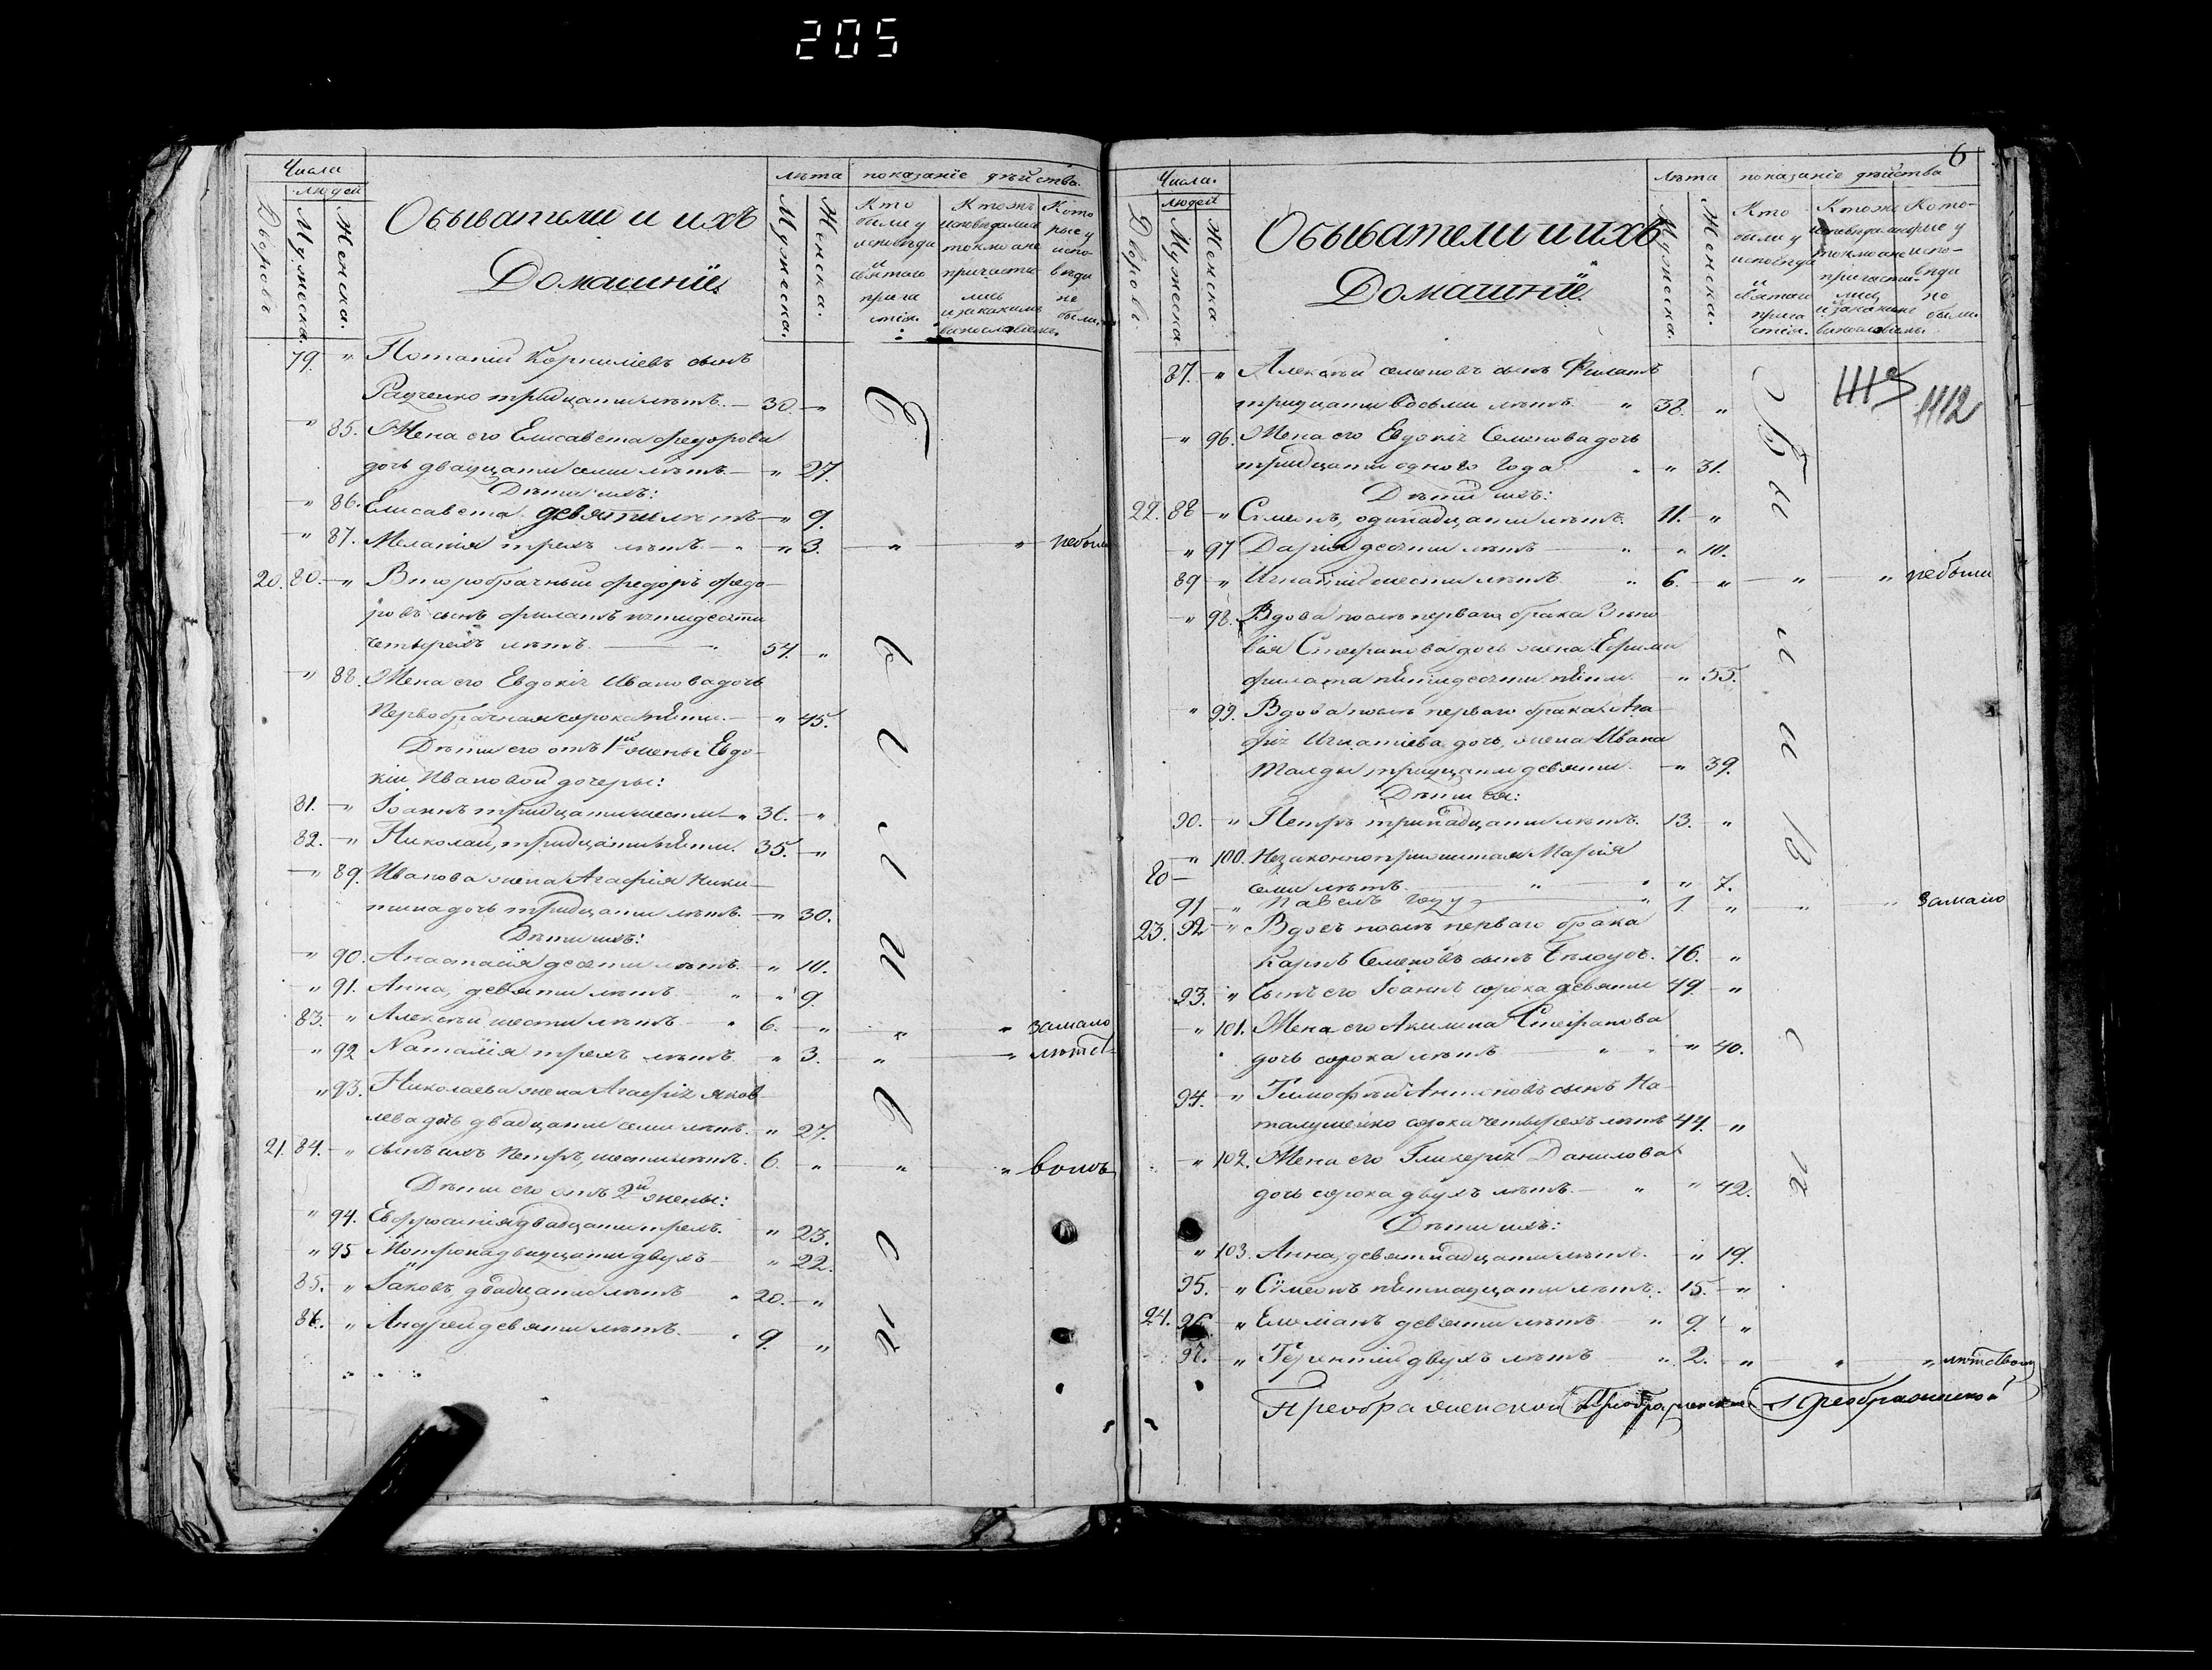 205
Числа
людей
Дворовъ
Мужеска.
Женска.
Обыватели и ихъ
Домашнїе.
лѣта
Мужеска.
Женска.
показанїе дѣйства.
Кто были у исповѣди и святаго причастїя.
Ктожъ исповѣдались токмо а не причастились и за какимъ винословїемъ.
Которые у исповѣди не были.
79. " Потапій Корнилїевъ сынъ
Радченко тридцати лѣтъ. — 30. "
" 85. Жена его Елисавета Федорова
дочь двадцати семи лѣтъ — " 27.
Дѣти ихъ:
" 86. Елисавета девяти лѣтъ — " 9.
" 87. Меланія трехъ лѣтъ — " 3. " " небыли
20. 80. " Второбрачный Федоръ Федо-
ровъ сынъ Филатъ пятидесяти
четырехъ лѣтъ. 54. "
" 88. Жена его Евдокія Иванова дочь
Первобрачная сорока пяти. — " 45.
Дѣти его отъ 1й жены Евдо-
кіи Ивановой дочеры:
81. " Іоаннъ тридцати шести " 36. "
82. " Николай, тридцати пяти. 35. "
" 89. Иванова жена Агафія Ники-
тина дочь тридцати лѣтъ. — " 30.
Дѣти ихъ:
" 90. Анастасія десяти лѣтъ. " 10.
" 91. Анна, девяти лѣтъ " " 9.
83. " Алексѣй шести лѣтъ " 6. " " " замало
" 92 Наталія трехъ лѣтъ " 3. " " лѣтст-
" 93. Николаева жена Агафія Яков-
лева дочь двадцати семи лѣтъ. " 27.
21. 84. " сынъ ихъ Петръ, шести лѣтъ. 6. " " " вомъ
Дѣти его отъ 2й жены:
" 94. Евфросинія двадцати трехъ. " 23.
" 95 Мотрона двадцати двухъ " 22.
85. " Іаковъ, двадцати лѣтъ " 20. "
86. " Андрей девяти лѣтъ. " 9. "
6
Числа.
людей
Дворовъ.
Мужеска
Женска
Обыватели и ихъ
Домашнїе.
лѣта
Мужеска.
Женска.
показанїе дѣйства
Кто были у исповѣди и святаго причастїя.
Ктоже исповѣдались токмо а не причастились и за какимъ винословїемъ.
Которые у исповѣди не были.
1112
87. " Алексѣй Семеновъ сынъ Филатъ
тридцати восьми лѣтъ " 38. "
" 96. Жена его Евдокія Семенова дочь
тридцати одного года " " 31.
Дѣти ихъ:
22. 88 " Симеонъ, одинадцати лѣтъ. 11. "
" 97 Дарія десяти лѣтъ " " 10.
89 " Игнатій шести лѣтъ " 6. " " " небыли
" 98. Вдова послѣ перваго брака Зино-
вія Стефанова дочь жена Ефима
Филата пятидесяти пяти. — " 55.
" 99. Вдова послѣ перваго брака Ага-
фія Игнатіева дочь, жена Ивана
тридцати девяти. " 39.
Дѣти ея:
90. " Петръ тринадцати лѣтъ. 13. "
" 100. Незаконноприжитая Марія
семи лѣтъ. " " " 7.
91 " Павелъ году " 1. " " " замало
23. 92 " Вдовъ послѣ перваго брака
Карпъ Семеновъ сынъ Бѣлоусъ. 76. "
93. " Сынъ его Іоаннъ сорока девяти 49. "
" 101. Жена его Акилина Стефанова
дочь сорока лѣтъ " " " 40.
94. " Тимофѣй Антоновъ сынъ На-
талушенко сорока четырехъ лѣтъ 44. "
" 102. Жена его Гликерія Данилова
дочь сорока двухъ лѣтъ. " " 42.
Дѣти ихъ:
" 103. Анна, девятнадцати лѣтъ. " 19.
95. " Симеонъ пятнадцати лѣтъ. 15. "
24. 96. " Емеліанъ девяти лѣтъ " 9. "
97. " Терентій двухъ лѣтъ " 2. " " " лѣтствомъ
Преображенской Преображенской Преображенской